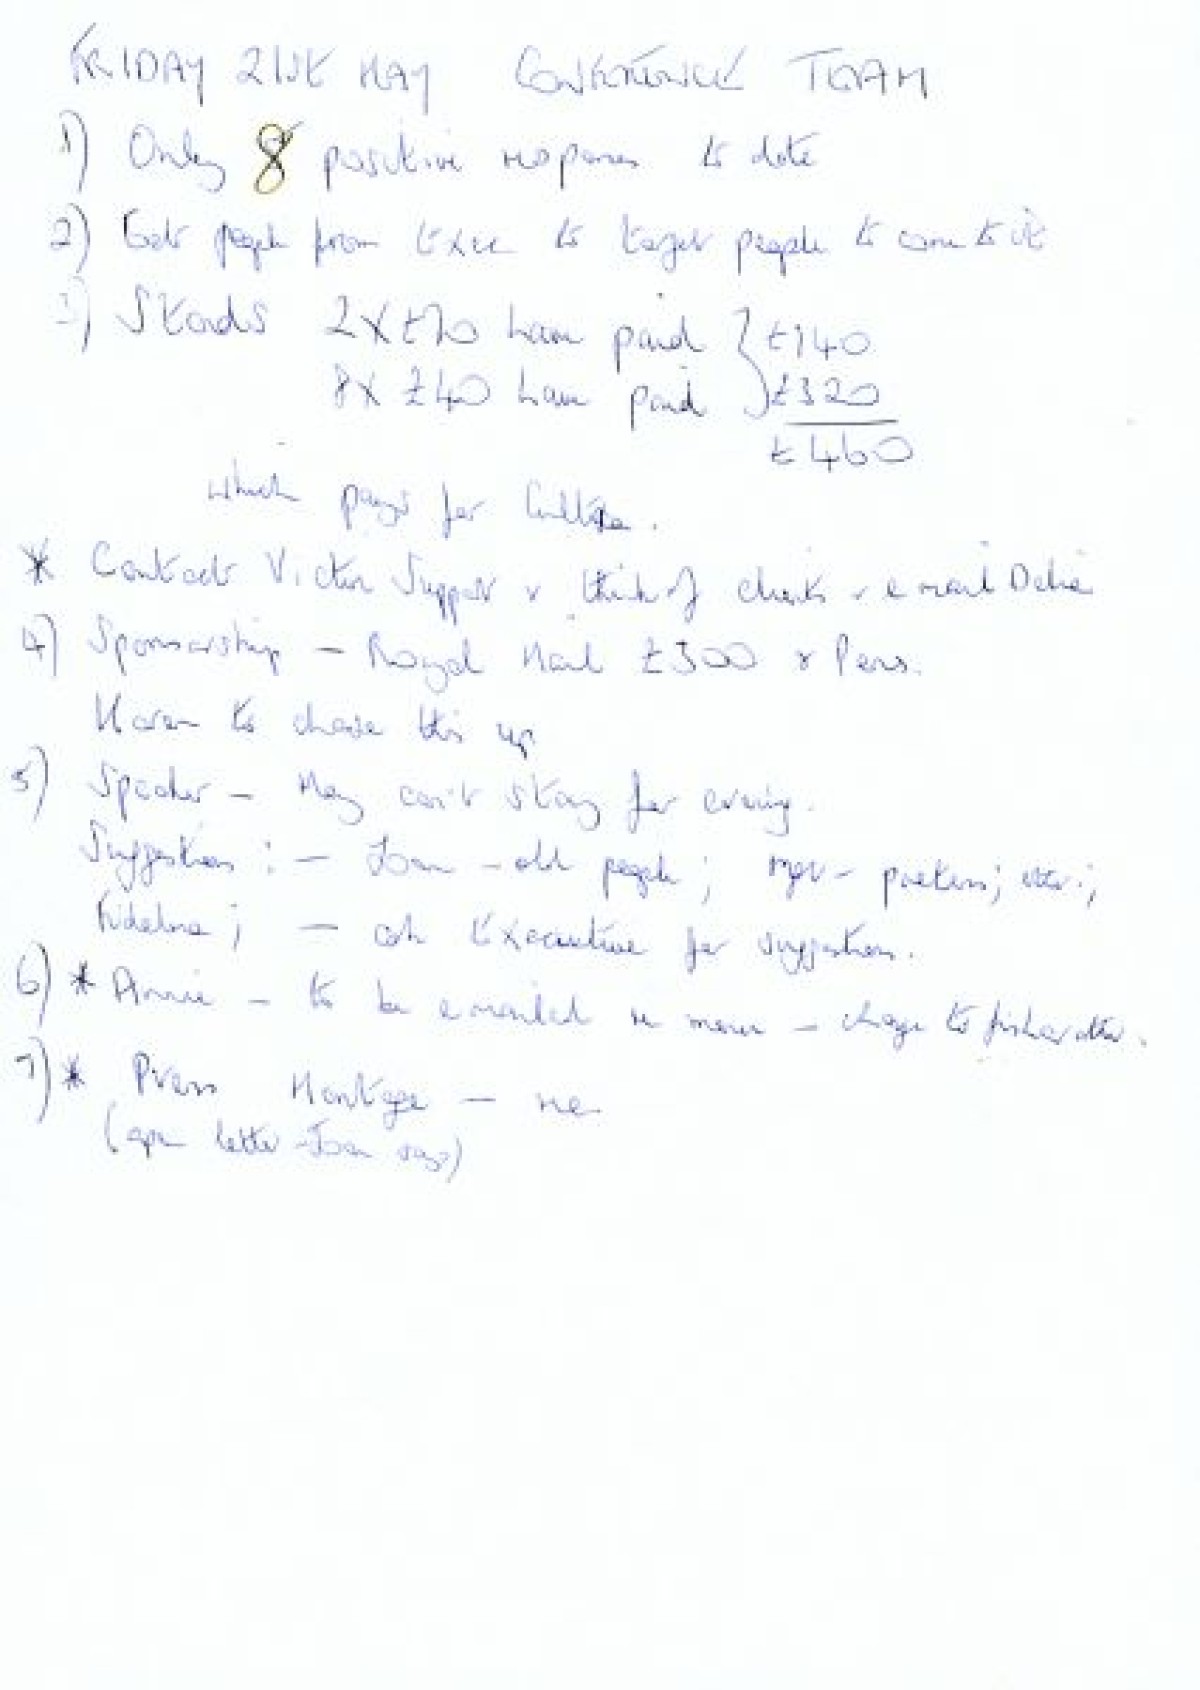 FRIDAY 21st MAY CONFERENCE TEAM
1) Only 8 positive responses to date
2) Get people from Exec to target people to come to it
3) Stands 2 x £70 have paid } £140
8 x £40 have paid £320
£460
which pays for
* Contact Victim Support & think of & email
4) Sponsorship – Royal Mail £300 & Pens.
Karen to chase this up
5) Speaker – May can't stay for evening.
Suggestions : – Joan – old people;
; – ask Executive for suggestions.
6) * Annie – to be emailed re menu – change to
7) * Press – me
(open letter – Joan says)